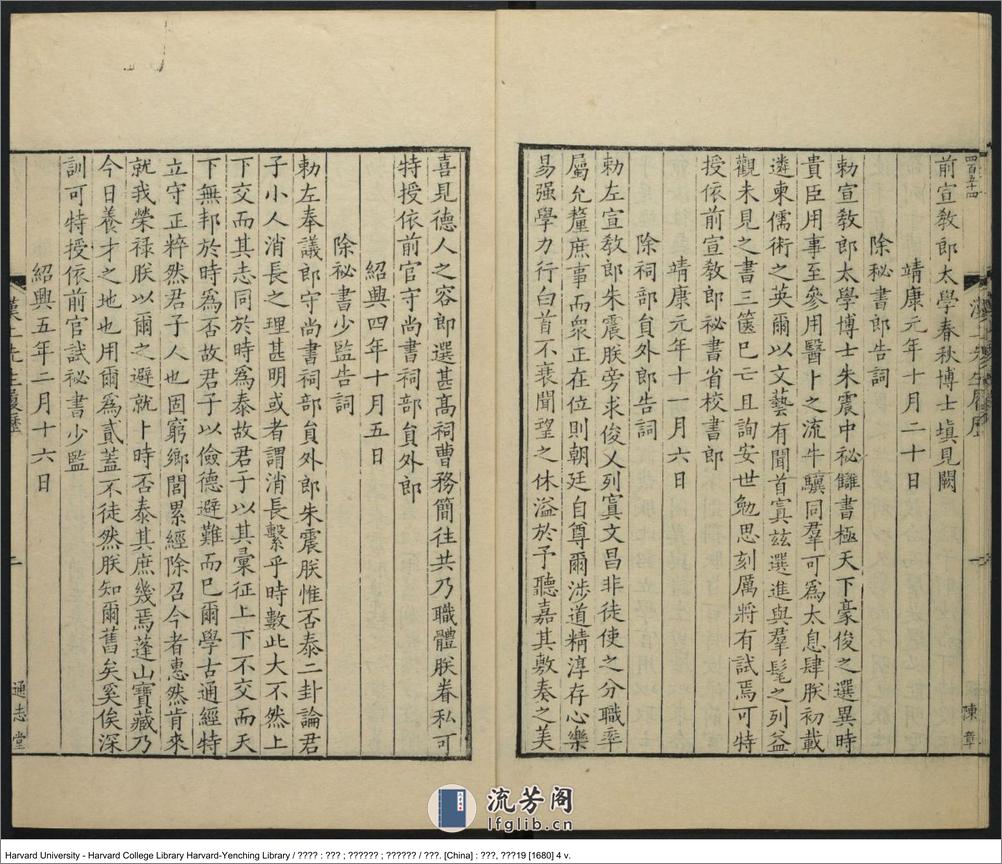 四百五十四
前宣敎郎太學春秋博士塡見闕
靖康元年十月二十日
除秘書郎告詞
敕宣敎郎太學博士朱震中祕讎書極天下豪俊之選異時
貴臣用事至參用醫卜之流牛驥同羣可爲太息肆朕初載
遴柬儒術之英爾以文藝有聞首寘玆選進與羣髦之列益
觀未見之書三篋已亡且詢安世勉思刻厲將有試焉可特
授依前宣敎郎秘書省校書郎
靖康元年十一月六日
除祠部貟外郎告詞
敕左宣敎郎朱震朕旁求俊乂列寘文昌非徒使之分職率
屬允釐庶事而衆正在位則朝廷自尊爾涉道精淳存心樂
易强學力行白首不衰聞望之休溢於予聽嘉其敷奏之美
漢上先生履歷
一
陳章
喜見德人之容郎選甚髙祠曹務簡往共乃職體朕眷私可
特授依前官守尚書祠部貟外郎
紹興四年十月五日
除祕書少監告詞
勅左奉議郎守尚書祠部貟外郎朱震朕惟否泰二卦論君
子小人消長之理甚明或者謂消長繫乎時數此大不然上
下交而其志同於時爲泰故君子以其彙征上下不交而天
下無邦於時爲否故君子以儉德避難而已爾學古通經特
立守正粹然君子人也固窮鄉閭累經除召今者惠然肯來
就我榮祿朕以爾之避就卜時否泰其庶幾焉蓬山寶藏乃
今日養才之地也用爾爲貳蓋不徒然朕知爾舊矣奚俟深
訓可特授依前官試祕書少監
紹興五年二月十六日
漢上先生履歷
二
通志堂
流芳阁
lfglib.cn
Harvard University - Harvard College Library Harvard-Yenching Library / ???? : ??? ; ?????? ; ?????? / ???. [China] : ???, ???19 [1680] 4 v.